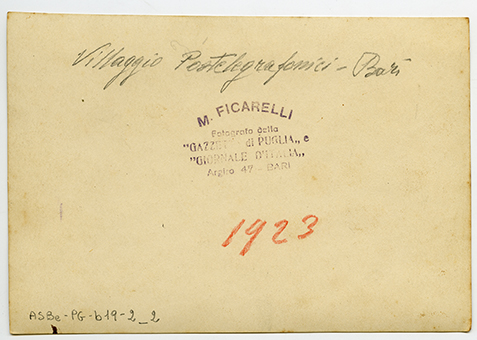 Villaggio Postelegrafonici - Bari
M. FICARELLI
Fotografo della
"GAZZETTA di PUGLIA„ e
"GIORNALE D'ITALIA„
Argiro 47 - BARI
1923
ASBe-PG-b19-2_2